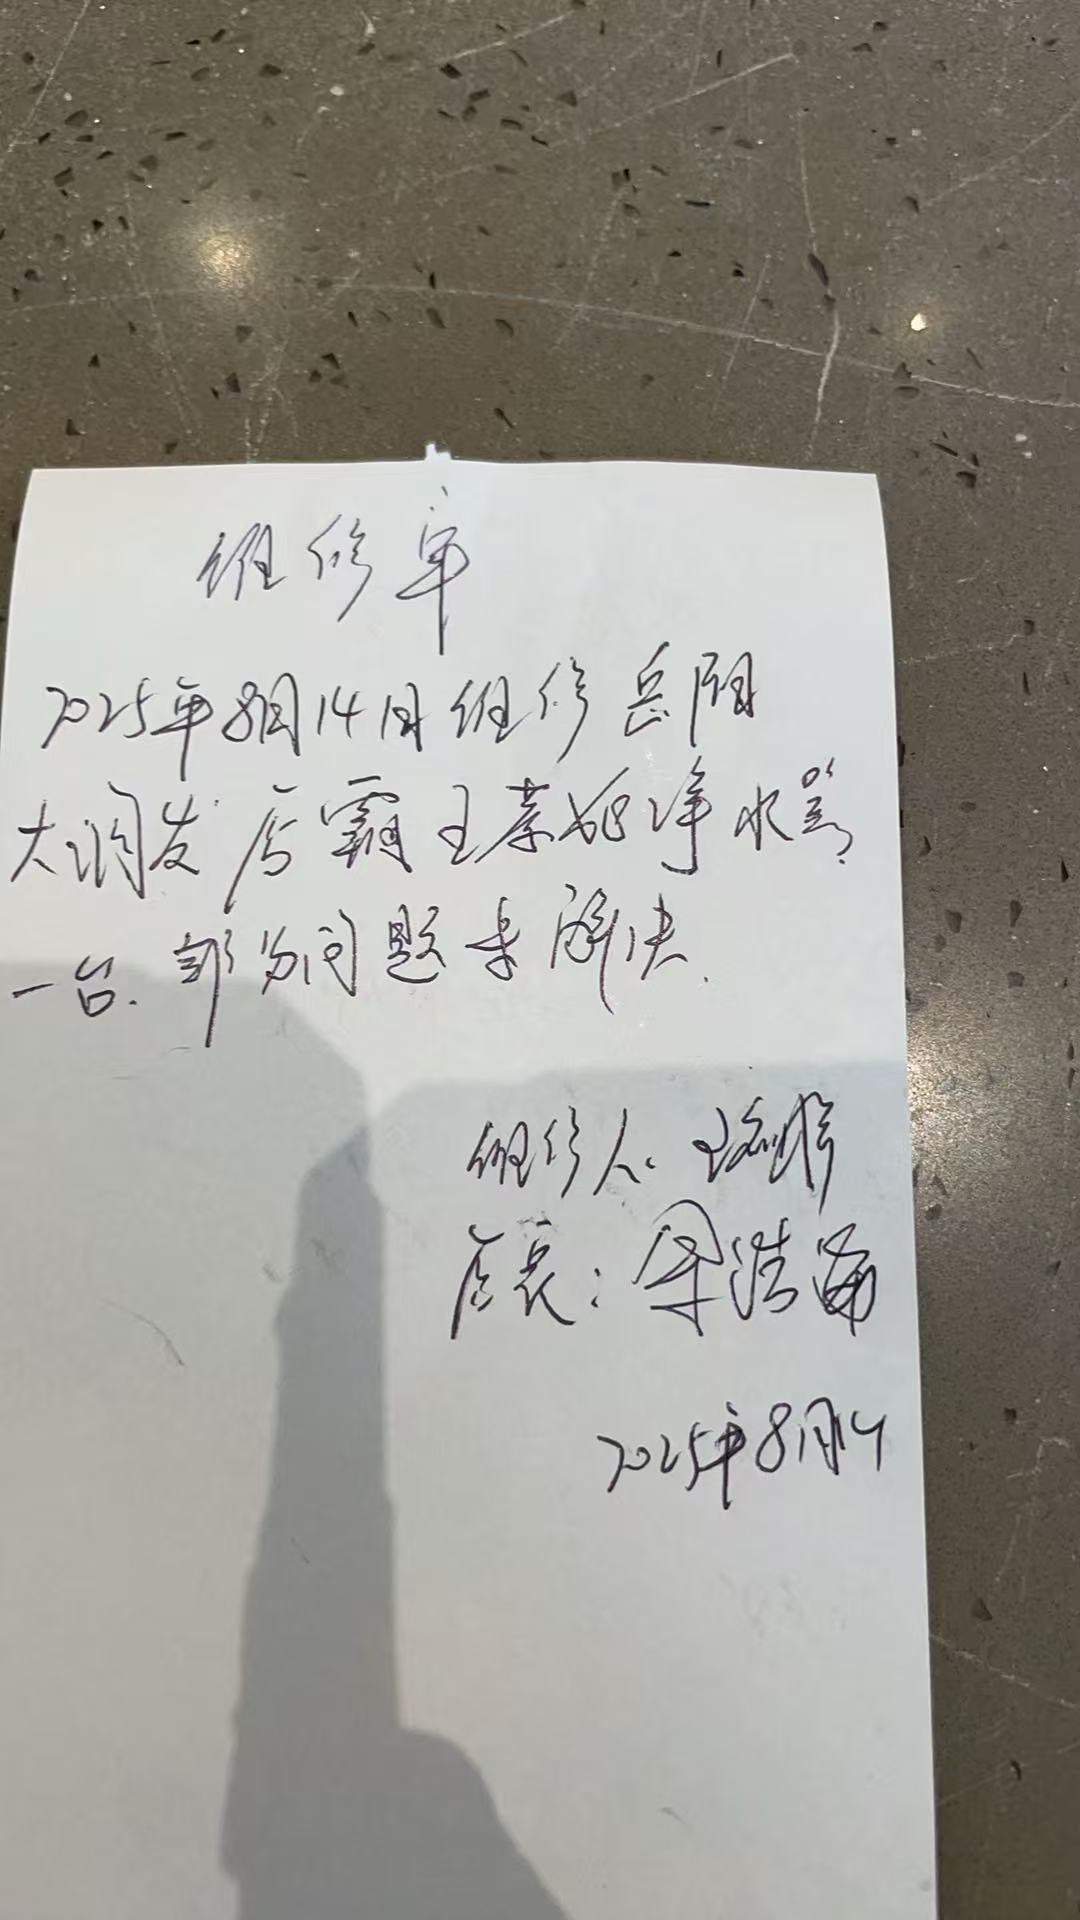 维修单
2025年8月14日维修岳阳
大润发店霸王茶姬净水器
一台.部分问题未解决.
维修人:
店长:梁浩
2025年8月14